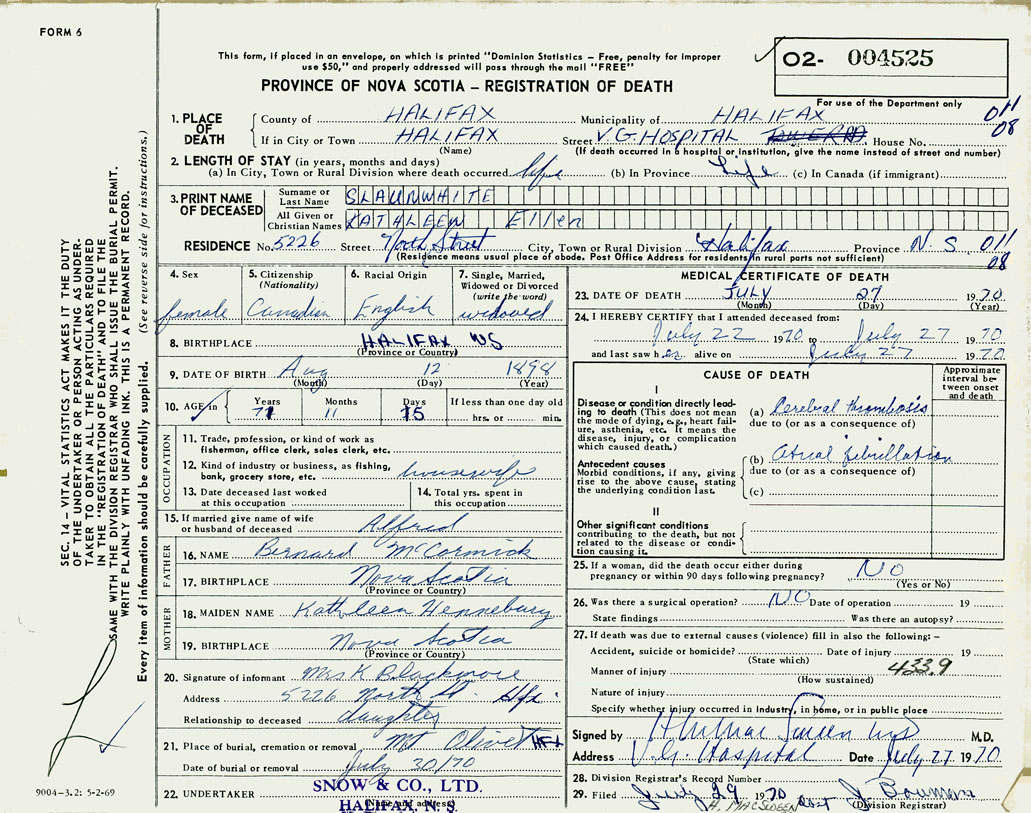 FORM 6
This form, if placed in an envelope, on which is printed "Dominion Statistics - Free, penalty for improper
use $50," and properly addressed will pass through the mail "FREE"
O2- 004525
For use of the Department only
PROVINCE OF NOVA SCOTIA – REGISTRATION OF DEATH
011
08
1. PLACE OF DEATH
County of HALIFAX Municipality of HALIFAX
If in City or Town HALIFAX Street V.G. HOSPITAL House No.
(Name) (If death occurred in a hospital or institution, give the name instead of street and number)
2. LENGTH OF STAY (in years, months and days)
(a) In City, Town or Rural Division where death occurred life (b) In Province Life (c) In Canada (if immigrant)
3. PRINT NAME OF DECEASED
Surname or Last Name SLAUNWHITE
All Given or Christian Names KATHLEEN Ellen
RESIDENCE No. 5226 Street North Street City, Town or Rural Division Halifax Province N.S 011
(Residence means usual place of abode. Post Office Address for residents in rural parts not sufficient) 08
4. Sex
female
5. Citizenship
(Nationality)
Canadian
6. Racial Origin
English
7. Single, Married,
Widowed or Divorced
(write the word)
widowed
8. BIRTHPLACE HALIFAX NS
(Province or Country)
9. DATE OF BIRTH Aug 12 1898
(Month) (Day) (Year)
10. AGE in Years Months Days If less than one day old
71 11 15 hrs. or min.
OCCUPATION
11. Trade, profession, or kind of work as
fisherman, office clerk, sales clerk, etc.
12. Kind of industry or business, as fishing,
bank, grocery store, etc. housewife
13. Date deceased last worked
at this occupation
14. Total yrs. spent in
this occupation
15. If married give name of wife
or husband of deceased Alfred
FATHER
16. NAME Bernard McCormick
17. BIRTHPLACE Nova Scotia
(Province or Country)
MOTHER
18. MAIDEN NAME Kathleen Hennebury
19. BIRTHPLACE Nova Scotia
(Province or Country)
20. Signature of informant Mrs K Blackmore
Address 5226 North St. Hfx.
Relationship to deceased daughter
21. Place of burial, cremation or removal Mt Olivet Hfx
Date of burial or removal July 30/70
22. UNDERTAKER SNOW & CO., LTD.
(Name and address)
HALIFAX, N. S.
MEDICAL CERTIFICATE OF DEATH
23. DATE OF DEATH JULY 27 1970
(Month) (Day) (Year)
24. I HEREBY CERTIFY that I attended deceased from:
July 22 1970 to July 27 1970
and last saw her alive on July 27 1970
CAUSE OF DEATH
Approximate
interval be-
tween onset
and death
I
Disease or condition directly lead-
ing to death (This does not mean
the mode of dying, e.g., heart fail-
ure, asthenia, etc. It means the
disease, injury, or complication
which caused death.)
(a) Cerebral thrombosis
due to (or as a consequence of)
Antecedent causes
Morbid conditions, if any, giving
rise to the above cause, stating
the underlying condition last.
(b) Atrial fibrillation
due to (or as a consequence of)
(c)
II
Other significant conditions
contributing to the death, but not
related to the disease or condi-
tion causing it.
25. If a woman, did the death occur either during
pregnancy or within 90 days following pregnancy? NO
(Yes or No)
26. Was there a surgical operation? NO Date of operation 19
State findings Was there an autopsy?
27. If death was due to external causes (violence) fill in also the following: –
Accident, suicide or homicide? Date of injury 19
(State which)
433.9
Manner of injury
(How sustained)
Nature of injury
Specify whether injury occurred in industry, in home, or in public place
Signed by M.D.
Address V.G. Hospital Date July 27 1970
28. Division Registrar's Record Number
29. Filed July 29 1970
(Division Registrar)
SEC. 14 – VITAL STATISTICS ACT MAKES IT THE DUTY
OF THE UNDERTAKER OR PERSON ACTING AS UNDER-
TAKER TO OBTAIN ALL THE PARTICULARS REQUIRED
IN THE "REGISTRATION OF DEATH" AND TO FILE THE
SAME WITH THE DIVISION REGISTRAR WHO SHALL ISSUE THE BURIAL PERMIT.
WRITE PLAINLY WITH UNFADING INK. THIS IS A PERMANENT RECORD.
Every item of information should be carefully supplied. (See reverse side for instructions.)
9004-3.2: 5-2-69